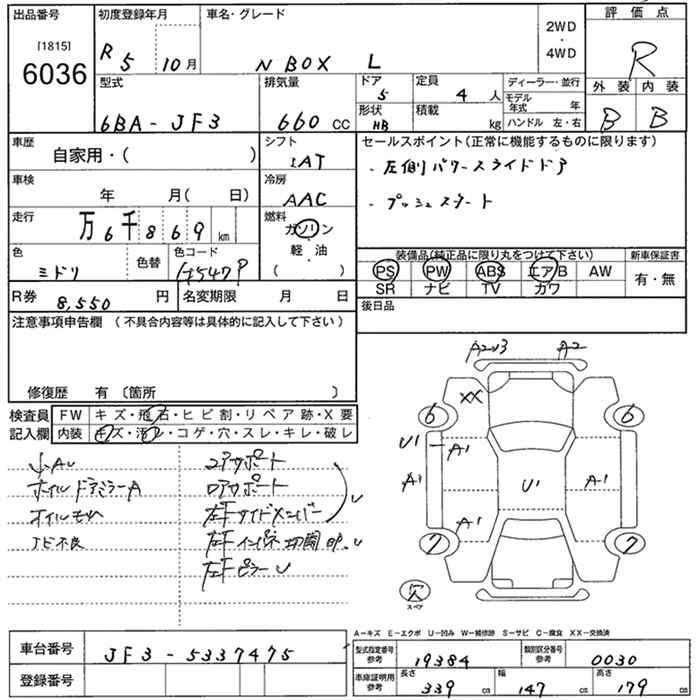 出品番号 初度登録年月 車名・グレード 評価点
[1815]
6036
R 5 10月 N BOX L
2WD
・
4WD
R
型式 排気量 ドア 定員 ディーラー・並行 外装 内装
6BA-JF3 660 CC 5 4 人
形状 積載 モデル年式 年
HB kg ハンドル 左・右 B B
車歴 シフト セールスポイント(正常に機能するものに限ります)
自家用・( ) IAT
・左側パワースライドドア
車検 冷房
年 月( 日) AAC
・プッシュスタート
走行 燃料
万 6千869 km ガソリン
軽油
( )
色 色替 色コード 装備品(純正品に限り丸をつけて下さい) 新車保証書
ミドリ G547P PS PW ABS エア/B AW 有・無
SR ナビ TV カワ
R券 8,550 円 名変期限 月 日 後日品
注意事項申告欄(不具合内容等は具体的に記入して下さい)
修復歴 有〔箇所 〕
検査員 FW キズ・飛石・ヒビ割・リペア跡・X要
記入欄 内装 キズ・汚レ・コゲ・穴・スレ・キレ・破レ
小AU コアサポート
ホイルドアミラーA ロアサポート
左Fサイドメンバー
ナビ不良 左Fインパネ切開
左FピラーU
A2U3 A2
XX
6 6
U1 A1
A1 U1 A1
A1
7 7
欠
スペア
A-キズ E-エクボ U-凹み W-補修跡 S-サビ C-腐食 XX-交換済
車台番号 JF3-5337475
型式指定番号 参考 19384 類別区分番号 参考 0030
登録番号
車庫証明用 参考 長さ 339 cm 幅 147 cm 高さ 179 cm